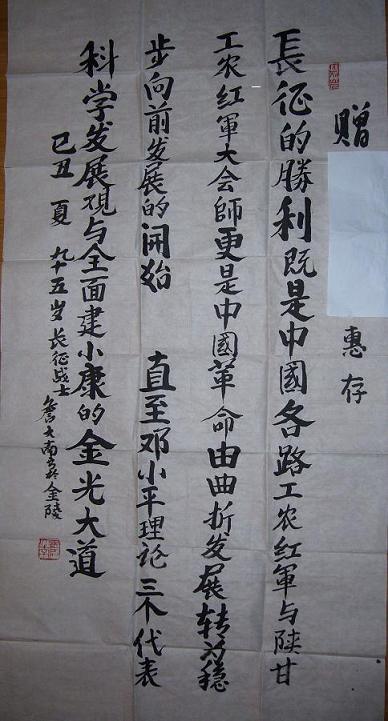 赠 惠存
長征的勝利既是中國各路工农红軍与陕甘
工农红軍大会師更是中國革命由曲折发展转为穩
步向前发展的開始 直至邓小平理论三个代表
科学发展观与全面建小康的金光大道
己丑夏 九十五岁长征战士詹大南书於金陵